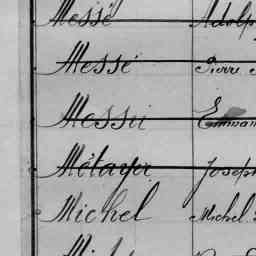 Messé Adolp
Messé Pierre
Messü Emman
Métayer Joseph
Michel Michel